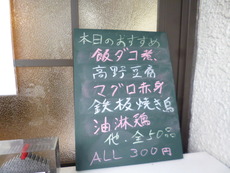 本日のおすすめ
飯ダコ煮
高野豆腐
マグロ赤身
鉄板焼き鳥
油淋鶏
他・全50
ALL 300円